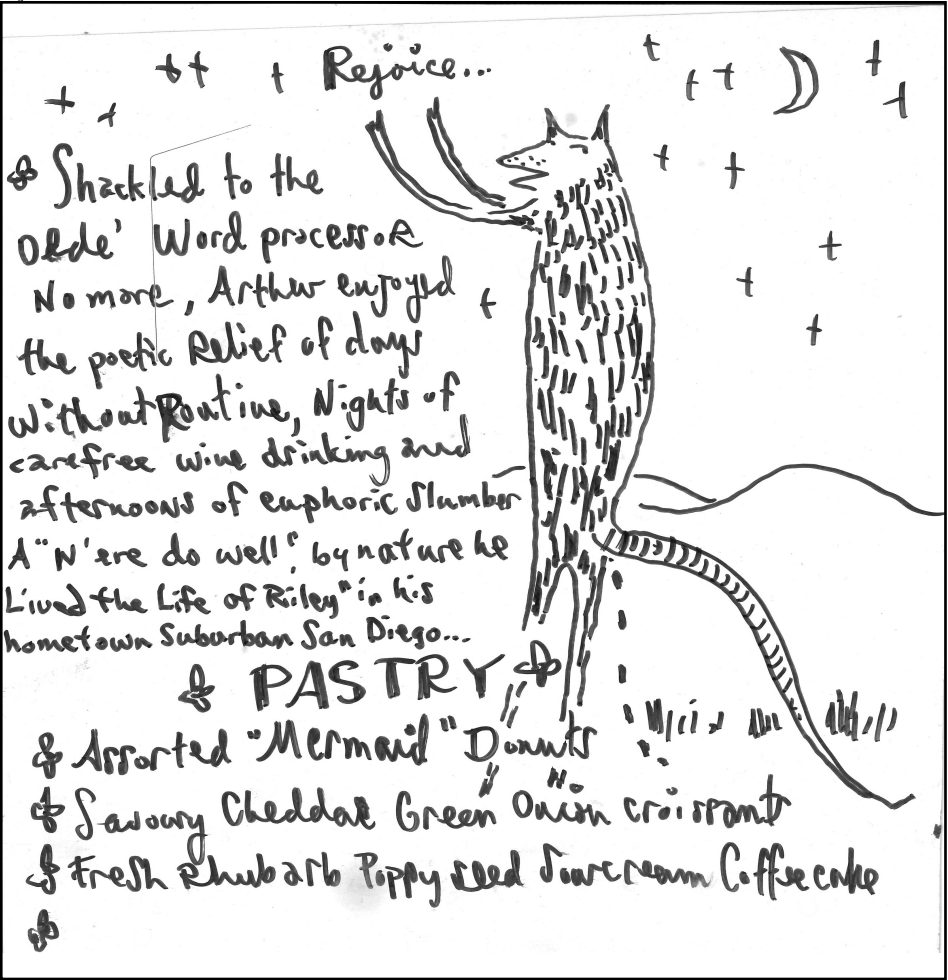 Rejoice...
Shackled to the
Olde' Word processor
No more, Arthur enjoyed
the poetic Relief of days
without Routine, Nights of
carefree wine drinking and
afternoons of euphoric Slumber
A "N'ere do well", by nature he
Lived the Life of Riley" in his
hometown Suburban San Diego...
PASTRY
Assorted "Mermaid" Donuts
Savoury Cheddar Green Onion croissants
Fresh Rhubarb Poppy seed Sourcream Coffeecake